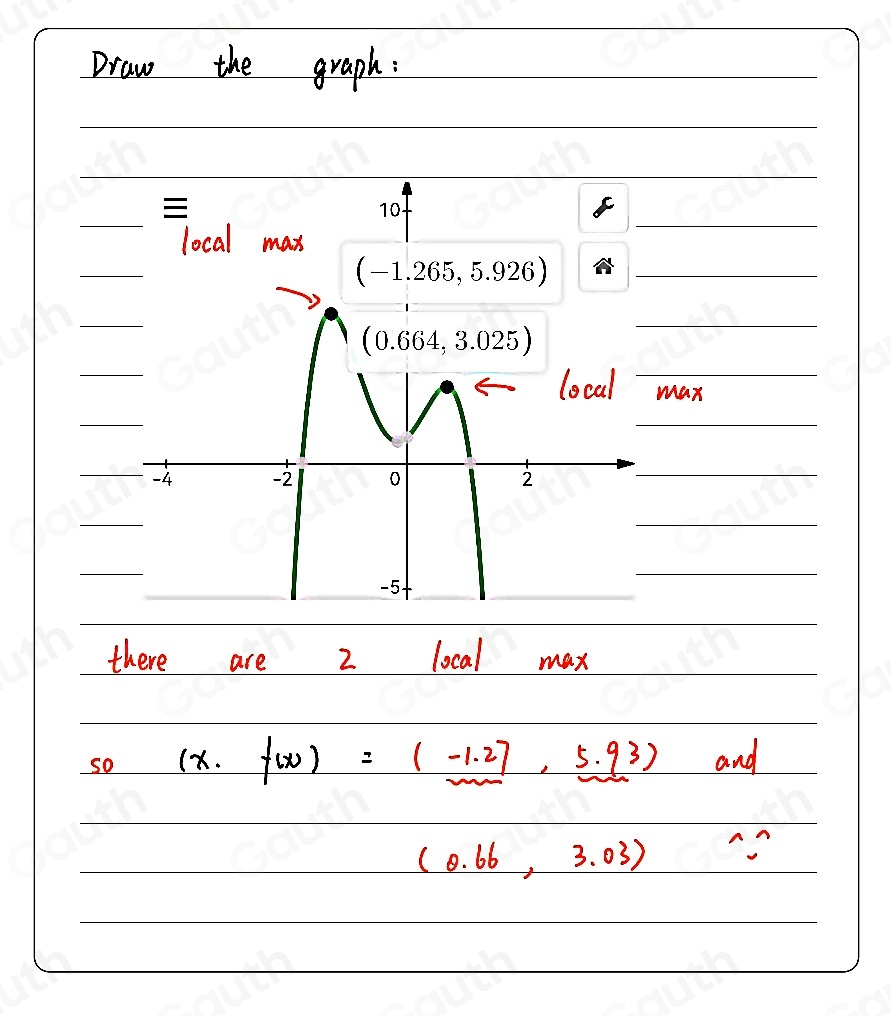 Draw the graph:
10
local max
(-1.265, 5.926)
(0.664, 3.025)
local max
-4 -2 0 2
-5
there are 2 local max
so (x. f(x)) = (-1.27, 5.93) and
(0.66, 3.03)
Gauth